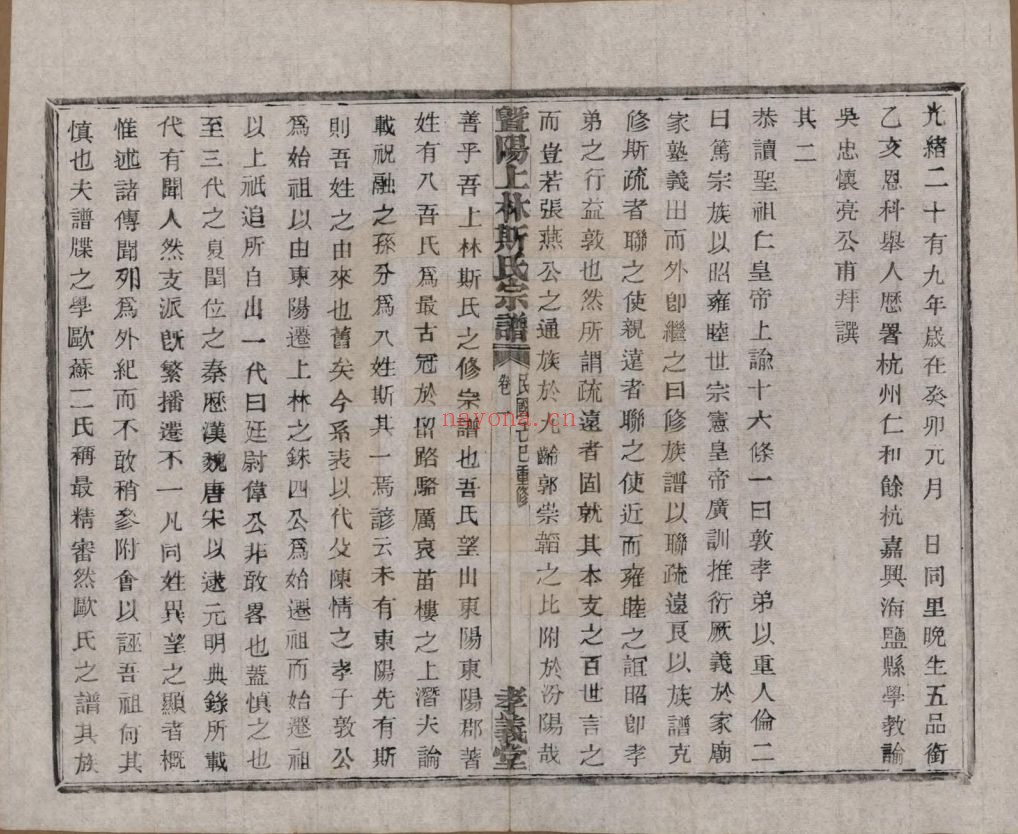 光緒二十有九年歲在癸卯元月　日同里晚生五品銜
乙亥恩科舉人歷署杭州仁和餘杭嘉興海鹽縣學教諭
吳忠懷亮公甫拜譔
其二
恭讀聖祖仁皇帝上諭十六條一曰敦孝弟以重人倫二
曰篤宗族以昭雍睦世宗憲皇帝廣訓推衍厥義於家廟
家塾義田而外卽繼之曰修族譜以聯疏遠良以族譜克
修斯疏者聯之使親遠者聯之使近而雍睦之誼昭卽孝
弟之行益敦也然所謂疏遠者固就其本支之百世言之
而豈若張燕公之通族於九齡郭崇韜之比附於汾陽哉
暨陽上林斯氏宗譜 卷一 民國己巳重修 孝義堂
善乎吾上林斯氏之修宗譜也吾氏望出東陽東陽郡著
姓有八吾氏爲最古冠於留路駱厲哀苗樓之上潛夫論
載祝融之孫分爲八姓斯其一焉諺云未有東陽先有斯
則吾姓之由來也舊矣今系表以代父陳情之孝子敦公
爲始祖以由東陽遷上林之銖四公爲始遷祖而始遷祖
以上祇追所自出一代曰廷尉偉公非敢畧也蓋慎之也
至三代之夏閏位之秦歷漢魏唐宋以逮元明典錄所載
代有聞人然支派旣繁播遷不一凡同姓異望之顯者概
惟述諸傳聞列爲外紀而不敢稍參附會以誣吾祖何其
慎也夫譜牒之學歐蘇二氏稱最精審然歐氏之譜其族
nayona.cn